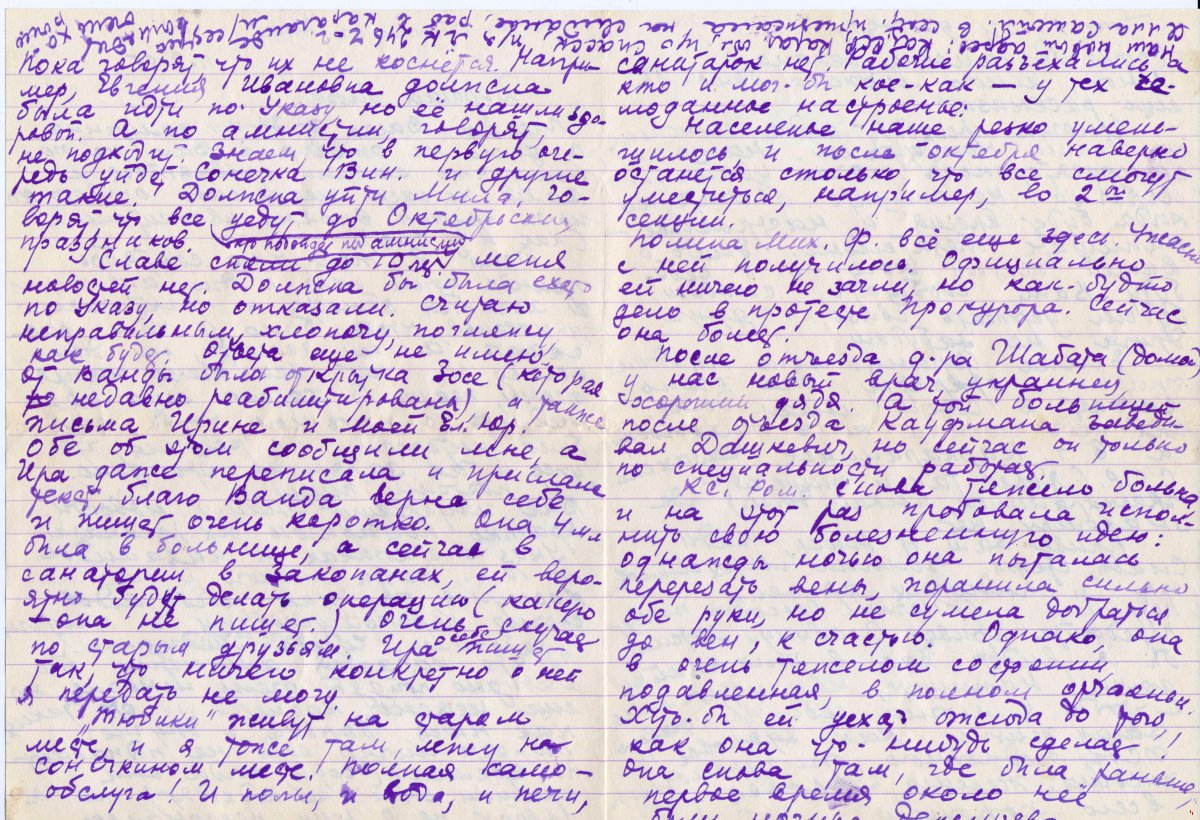 Пока говорят что их не коснётся. Напри-
мер, Евгения Ивановна должна
была идти по Указу но её нашли здо-
ровой. А по амнистии говорят,
не подходит. Знаем, что в первую оче-
редь уйдет Сонечка Вин. и другие
такие. Должна уйти Мила. Го-
ворят что все уедут до Октябрьских
праздников.
по амнистии
Славе до меня
новостей нет. Должна бы была ехать
по Указу, но отказали. Считаю
неправильным, хлопочу, погляжу,
как будет. Ответа еще не имею
От Ванды была открытка Зосе (которая
недавно реабилитирована) и также
письма Ирине и моей Ел. Юр.
Обе об этом сообщили мне, а
Ира даже переписала и прислала
текст, благо Ванда верна себе
и пишет очень коротко. Она 4 м-ца
была в больнице, а сейчас в
санатории в Закопанах, ей веро-
ятно будут делать операцию (какую
— она не пишет.) Очень скучает
по старым друзьям. Ира о себе пишет
так, что ничего конкретно о ней
я передать не могу.
"Тюбики" живут на старом
месте и я тоже там, лежу на
сонечкином месте. Полная само-
обслуга! И полы, и вода, и печи,
санитарок нет. Рабочие разъехались, а
кто и мог-бы кое-как — у тех че-
моданное настроенье.
Население наше резко умень-
шилось, и после октября наверно
останется столько что все смогут
уместиться, например, во 2ой
секции.
Полина Мих. Ф. всё еще здесь. Ужасно
с ней получилось. Официально
ей ничего не зачли, но как-будто
дело в протесте прокурора. Сейчас
она болеет.
После отъезда д-ра Шабата (домой)
у нас новый врач, украинец,
хороший дядя. А той больницей
после отъезда Кауфмана заведы-
вал Дашкевич, но сейчас он только
по специальности работает.
Кс. Ром. снова тяжело больна
и на этот раз пробовала испол-
нить свою болезненную идею:
однажды ночью она пыталась
перерезать вены, поранила сильно
обе руки, но не сумела добраться
до вен, к счастью. Однако, она
в очень тяжелом состоянии,
подавленная, в полном отчаяньи.
Хоть-бы ей уехать отсюда до того,
как она что-нибудь сделает!
Она снова там, где была раньше,
первое время около неё